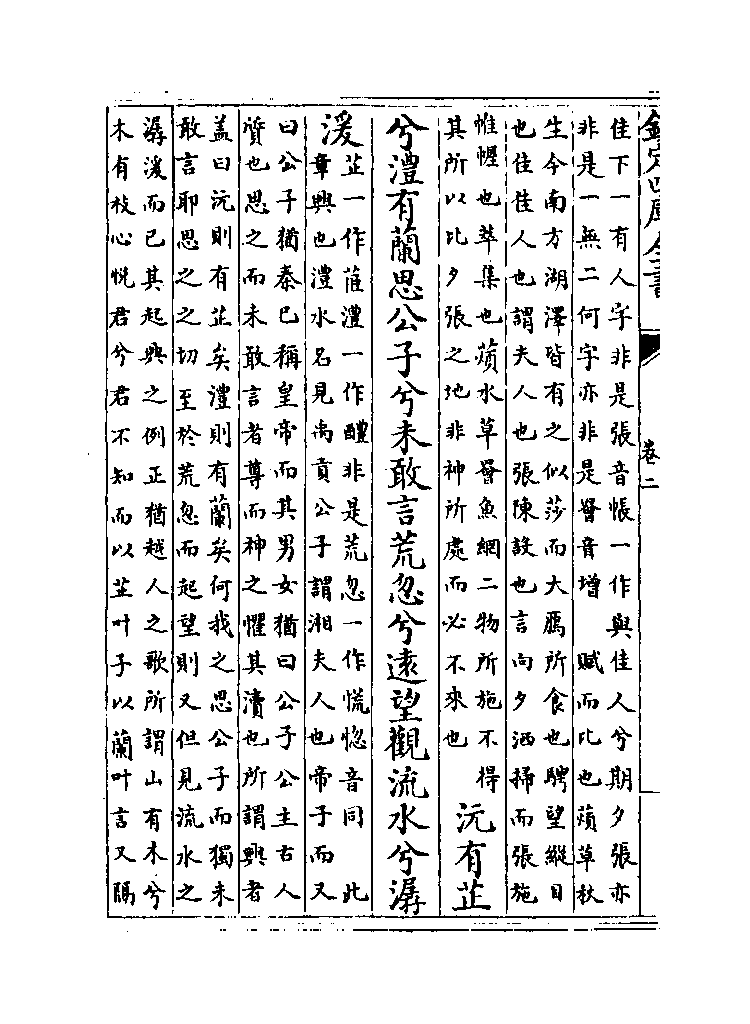 欽定四庫全書
卷二
佳下一有人字非是張音帳一作與佳人兮期夕張亦
非是一無二何字亦非是罾音增 賦而比也薠草秋
生今南方湖澤皆有之似莎而大鴈所食也騁望縱目
也佳佳人也謂夫人也張陳設也言向夕洒掃而張施
帷幄也萃集也薠水草罾魚網二物所施不得
其所以比夕張之地非神所處而必不來也
沅有芷
兮澧有蘭思公子兮未敢言荒忽兮逺望觀流水兮潺
湲
芷一作茝澧一作醴非是荒忽一作慌惚音同 此
章興也澧水名見禹貢公子謂湘夫人也帝子而又
曰公子猶秦已稱皇帝而其男女猶曰公子公主古人
質也思之而未敢言者尊而神之懼其瀆也所謂興者
盖曰沅則有芷矣澧則有蘭矣何我之思公子而獨未
敢言耶思之之切至於荒忽而起望則又但見流水之
潺湲而已其起興之例正猶越人之歌所謂山有木兮
木有枝心悅君兮君不知而以芷叶子以蘭叶言又隔